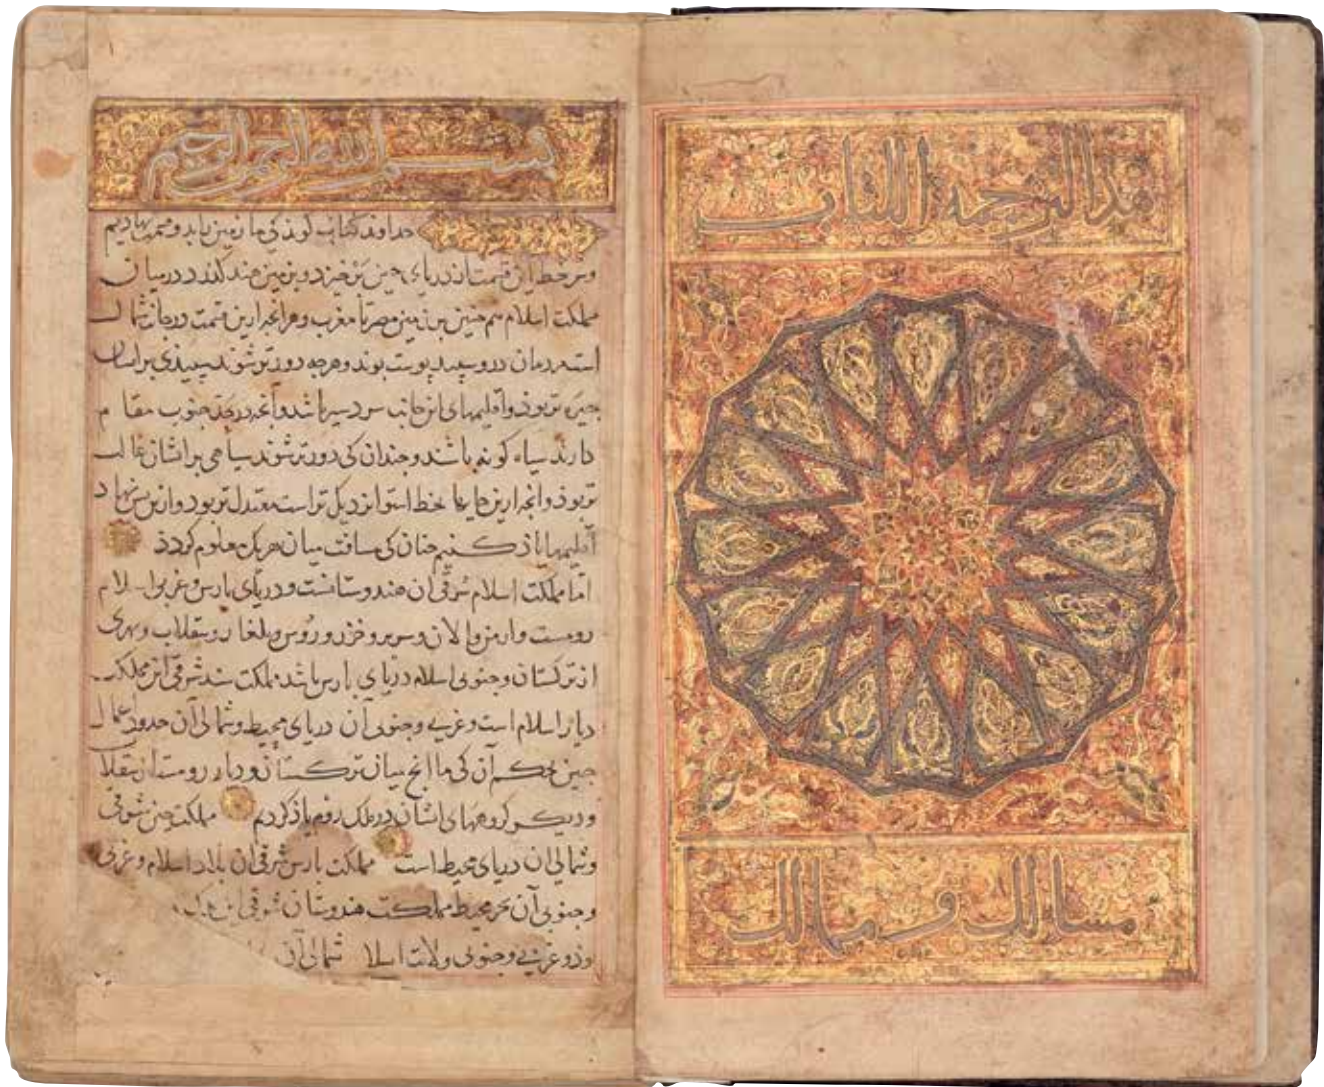 هذا الترجمه الکتاب
مسالک وممالک
بسم الله الرحمن الرحیم
خداوند کتاب کوید کی ما زمین بابد وقسمت نهادیم
وسر خط این قسمت از دریای جین برخیزد وبر زمین هند کذرد در میان
مملکت اسلام هم جنین بر زمین مصر تا مغرب وهر انجه ازین قسمت ورجانب شمال
است مردمان درو سپید پوست بوند وهر جه دورتر شوند سپیدی بر ایشان
جیره تر بوذ واقلیمهای این جانب سردسیر باشد وآنجه در حد جنوب مقام
دارند سیاه کونه باشند وجندان کی دورتر شوند سیاهی بر ایشان غالب
تر بوذ وانجه ازین جایها بخط استوا نزدیک تر است معتدل تر بود وازین پس نهاد
اقلیمها یاذ کنیم جنان کی مسافت میان هر یک معلوم کردذ
اما مملکت اسلام شرقی آن هندوستانست ودریای پارس وغربی اسلام
رومست وارمن والان وسریر وخزر وروس وبلغار وسقلاب وبهری
از ترکستان وجنوبی اسلام دریای پارس باشد مملکت سند شرقی آن مملکت
دیار اسلام است وغربی وجنوبی آن دریای محیط وشمالی آن حدود اعمال
جین بحکم آن کی ما انج میان ترکستان ودیار رومست از سقلاب
ودیکر کروههای ایشان در ملک روم یاذ کردیم مملکت جین شرقی
وشمالی ان دریای محیط است مملکت پارس شرقی آن بلاد اسلام وغربی
وجنوبی آن بحر محیط مملکت هندوستان شرقی این
وذو غربی وجنوبی ولایت اسلا شمالی آن